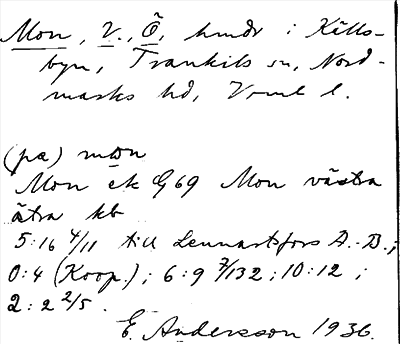 Mon, V., Ö, hmdr i Källs-
byn, Trankils sn, Nord-
marks hd, Vrml l.
(pæ) mon
Mon ek G69 Mon västra
östra kb
5:16 4/11 till Lennartsfors A.-B.;
0:4 (Koop.); 6:9 7/132; 10:12;
2:2 2/5.
E. Andersson 1936.